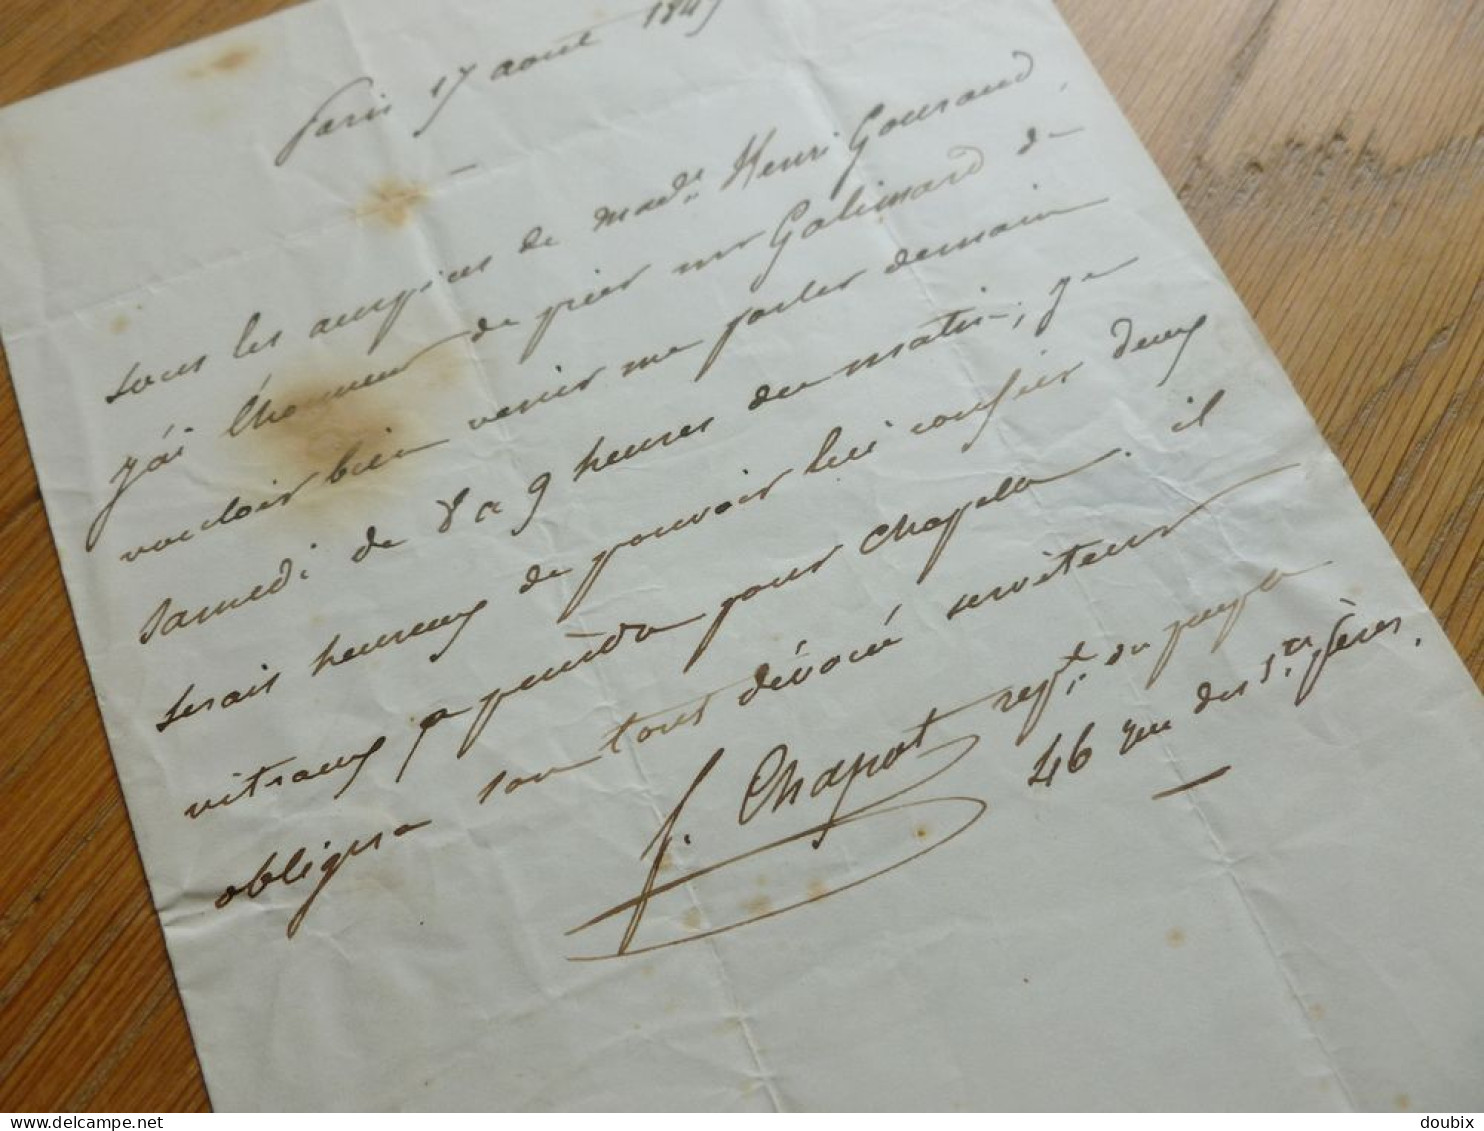 Paris 17 aout 1849
sous les auspices de mad.e Henri Gouraud,
j'ai l'honneur de prier mr Galimard de
vouloir bien venir me parler demain
samedi de 8 a 9 heures du matin; je
serais heureux de pouvoir lui confier deux
vitraux a peindre pour chapelle. il
obligera son tout dévoué serviteur
J. Chapot rept. du peuple
46 rue des Sts pères.
doubix